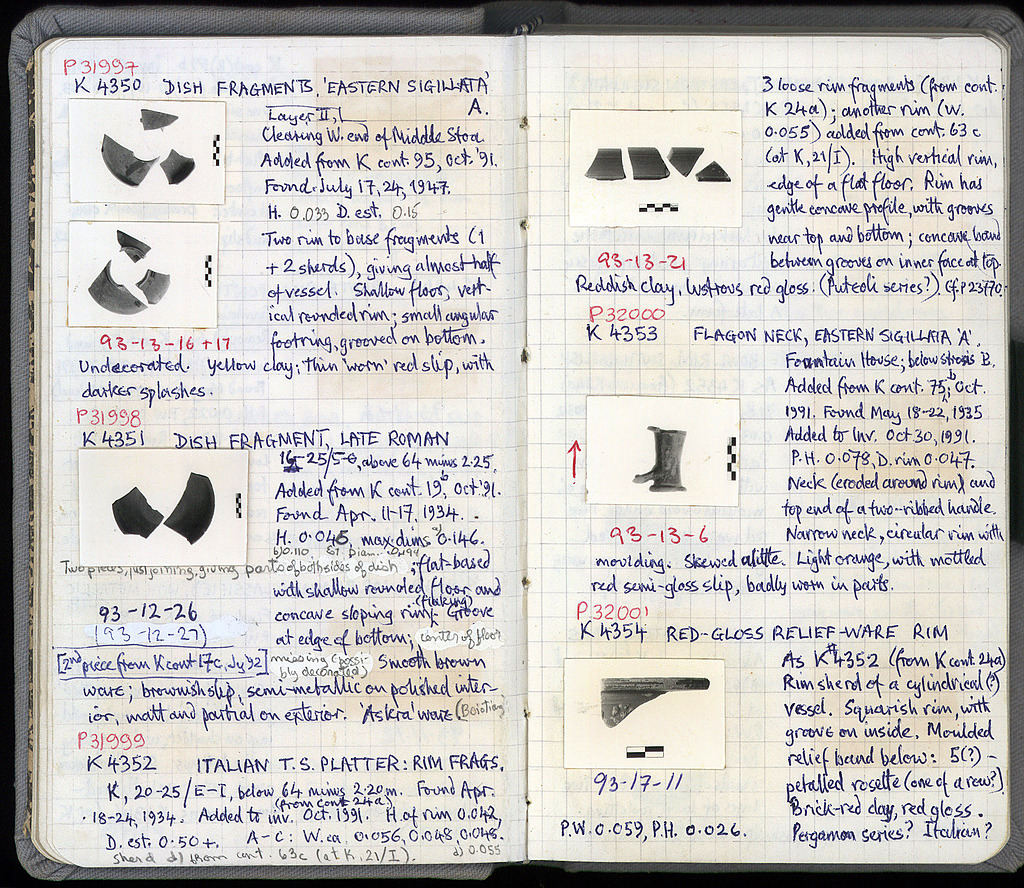 P 31997
K 4350 DISH FRAGMENTS, 'EASTERN SIGILLATA'
A.
Layer II,
Clearing W. end of Middle Stoa.
Added from K cont. 95, Oct. '91.
Found July 17, 24, 1947.
H. 0.033 D. est. 0.15
Two rim to base fragments (1
+ 2 sherds), giving almost half
of vessel. Shallow floor, vert-
ical rounded rim; small angular
footring, grooved on bottom.
93-13-16 + 17
Undecorated. Yellow clay; thin 'worn' red slip, with
darker splashes.
P 31998
K 4351 DISH FRAGMENT, LATE ROMAN
25/5- above 64 minus 2.25.
Added from K cont. 19b, Oct. '91.
Found Apr. 11-17, 1934.
H. 0.045, max dims a) 0.146.
b) 0.110 Est. Diam. 0.194
Two pieces, just joining, giving parts of both sides of dish; flat-based
with shallow rounded floor and
(flaking)
concave sloping rim; Groove
at edge of bottom; center of floor
93-12-26
(93-12-27)
[2nd piece from K cont 17c, Jy '92] missing (possi-
bly decorated) Smooth brown
ware; brownish slip, semi-metallic on polished inter-
ior, matt and partial on exterior. 'Askra' ware (Boiotian)
P 31999
K 4352 ITALIAN T.S. PLATTER: RIM FRAGS.
K, 20-25/E-I, below 64 minus 2.20m. Found Apr.
(from cont 24a)
18-24, 1934. Added to inv. Oct. 1991. H. of rim 0.042,
D. est. 0.50+. A-C: W. ca. 0.056, 0.048, 0.048.
sherd d) from cont. 63c (at K, 21/I). d) 0.055
3 loose rim fragments (from cont.
K 24a); another rim (W.
0.055) added from cont. 63c
(at K, 21/I). High vertical rim,
edge of a flat floor. Rim has
gentle concave profile, with grooves
near top and bottom; concave band
between grooves on inner face at top.
93-13-21
Reddish clay, lustrous red gloss. (Puteoli series?). Cf. P 23770.
P 32000
K 4353 FLAGON NECK, EASTERN SIGILLATA 'A'.
Fountain House; below strosis B.
Added from K cont. 75b, Oct.
1991. Found May 18-22, 1935
Added to Inv. Oct 30, 1991.
P.H. 0.078, D. rim 0.047.
Neck (eroded around rim) and
top end of a two-ribbed handle.
Narrow neck, circular rim with
93-13-6
moulding. Skewed a little. Light orange, with mottled
red semi-gloss slip, badly worn in parts.
P 32001
K 4354 RED-GLOSS RELIEF-WARE RIM
As K 4352 (from K cont. 24a)
Rim sherd of a cylindrical (?)
vessel. Squarish rim, with
groove on inside. Moulded
relief band below: 5(?)-
petalled rosette (one of a row?)
93-17-11
Brick-red clay, red gloss.
P.W. 0.059, P.H. 0.026.
Pergamon series? Italian?